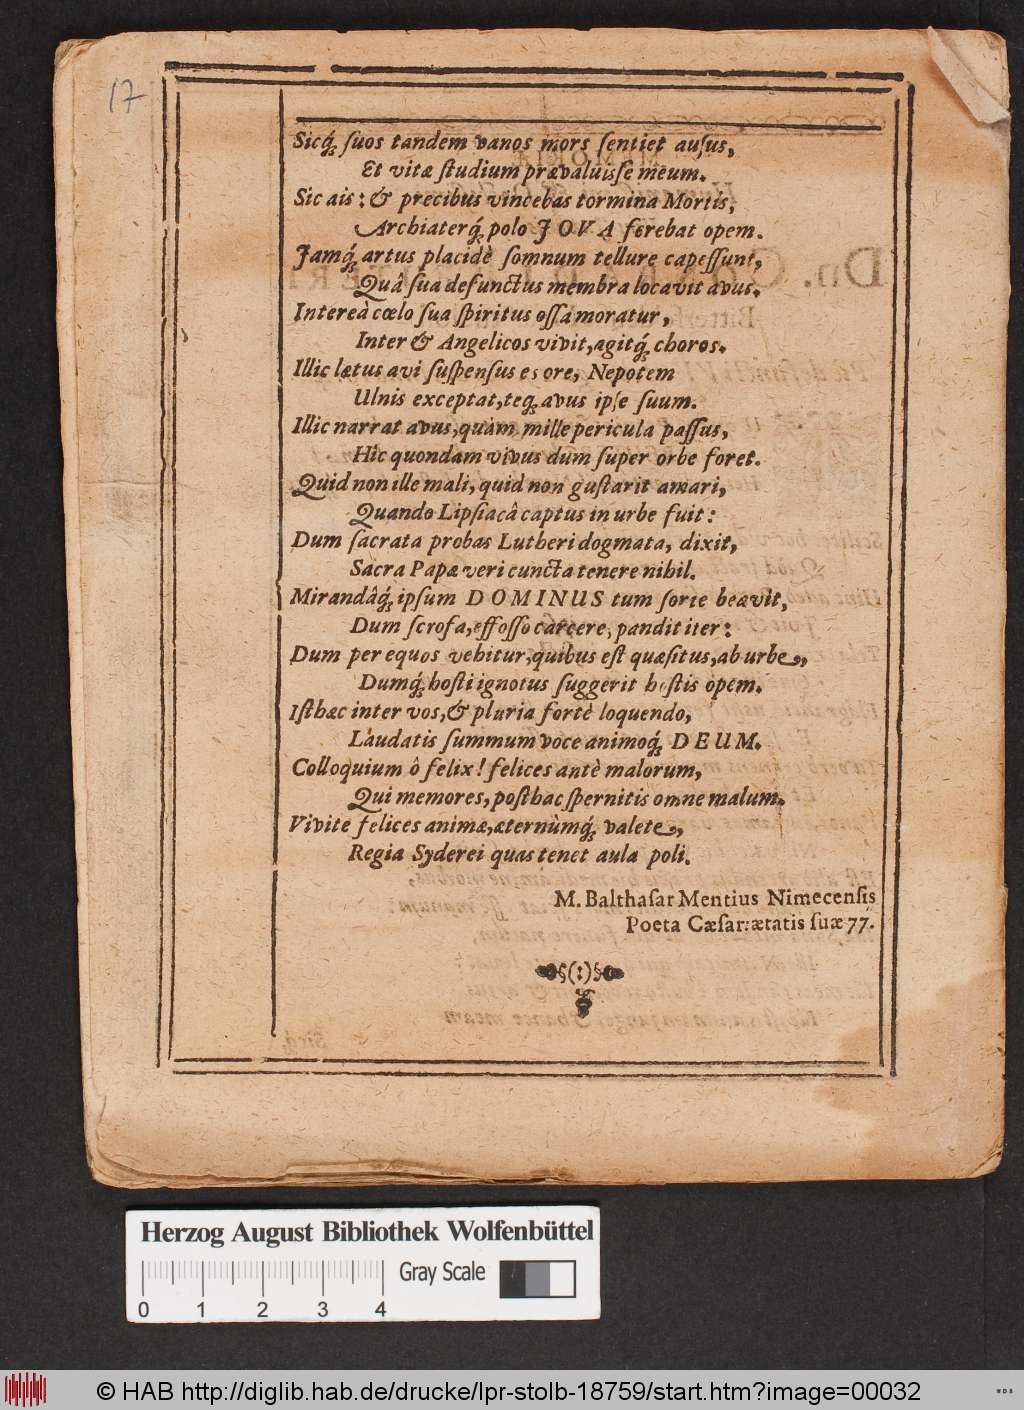 17
Sicq́; ſuos tandem vanos mors ſentiet auſus,
Et vitæ ſtudium prævaluiſſe meum.
Sic ais: & precibus vincebas tormina Mortis,
Archiaterq́; polo JOVA ferebat opem.
Jamq́; artus placidè ſomnum tellure capeſſunt,
Quâ ſua defunctus membra locavit avus.
Intereà cœlo ſua ſpiritus oſſa moratur,
Inter & Angelicos vivit, agitq́; choros.
Illic lætus avi ſuſpenſus es ore, Nepotem
Ulnis exceptat, teq; avus ipſe ſuum.
Illic narrat avus, quàm mille pericula paſſus,
Hîc quondam vivus dum ſuper orbe foret.
Quid non ille mali, quid non guſtarit amari,
Quando Lipſiacâ captus in urbe fuit:
Dum ſacrata probas Lutheri dogmata, dixit,
Sacra Papæ veri cuncta tenere nihil.
Mirandâq́; ipſum DOMINUS tum ſorte beavit,
Dum ſcrofa, effoſſo carcere, pandit iter:
Dum per equos vehitur, quibus eſt quæſitus, ab urbe,
Dumq́; hoſti ignotus ſuggerit hoſtis opem.
Iſthæc inter vos, & pluria fortè loquendo,
Laudatis ſummum voce animoq́; DEUM.
Colloquium ô felix! felices antè malorum,
Qui memores, poſthac ſpernitis omne malum.
Vivite felices animæ, æternùmq́; valete,
Regia Syderei quas tenet aula poli.
M. Balthaſar Mentius Nimecenſis
Poeta Cæſar: ætatis ſuæ 77.
§(:)§
Herzog August Bibliothek Wolfenbüttel
Gray Scale
0 1 2 3 4
© HAB http://diglib.hab.de/drucke/lpr-stolb-18759/start.htm?image=00032